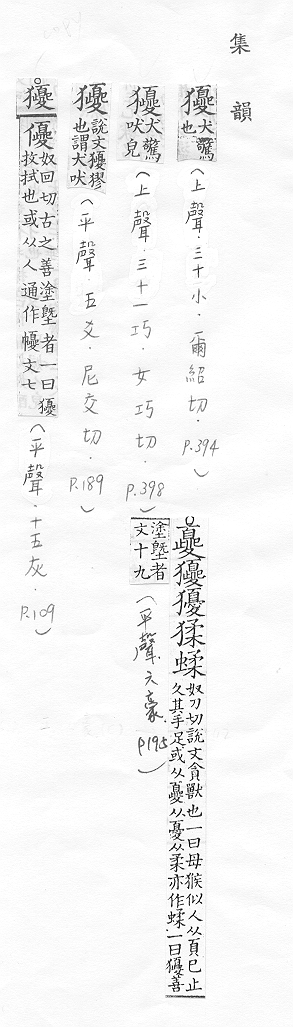 集韻
獿犬驚也(上聲.三十小.爾紹切.P.394)
獿犬驚吠皃(上聲.三十一巧.女巧切.P.398)
獿說文獿獟也謂犬吠(平聲.五爻.尼交切.P.189)
獿𢖒奴回切古之善塗墍者一曰獿
抆拭也或从人通作㠜文七(平聲.十五灰.P.109)
夒獿獶猱蝚奴刀切說文貪獸也一曰母猴似人从頁巳止
夂其手足或从夒从憂从柔亦作蝚一曰獶善
塗墍者文十九(平聲.六豪.P195)